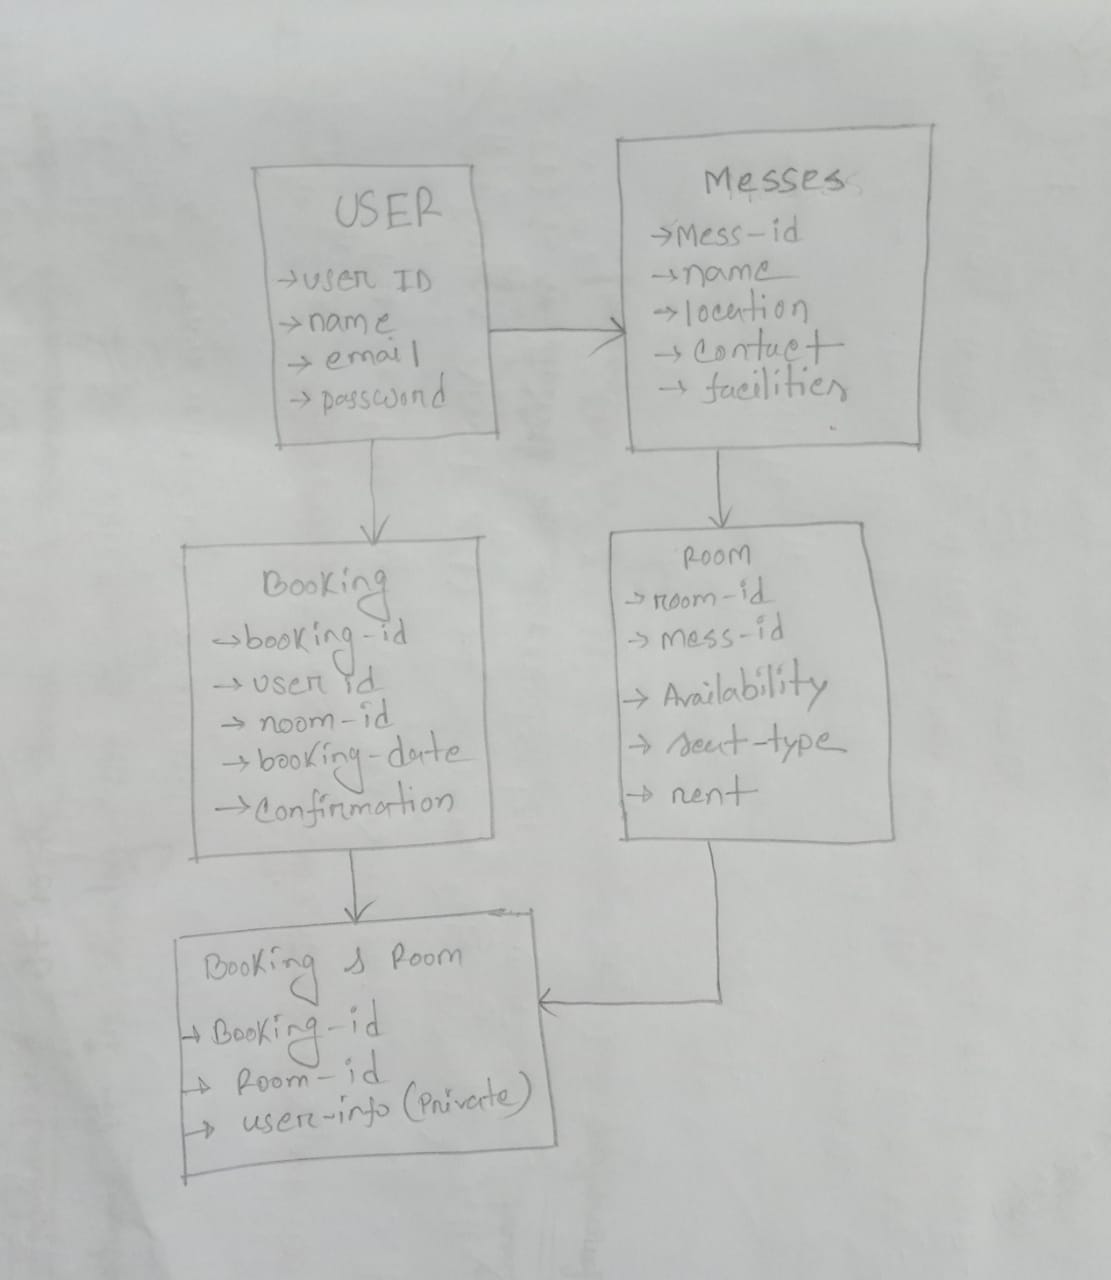 USER
→user ID
→name
→email
→password
Messes
→Mess-id
→name
→location
→Contact
→facilities
Booking
→booking-id
→user id
→room-id
→booking-date
→Confirmation
ROOM
→room-id
→mess-id
→Availability
→seat-type
→rent
Booking & Room
→Booking-id
→Room-id
→user-info (Private)